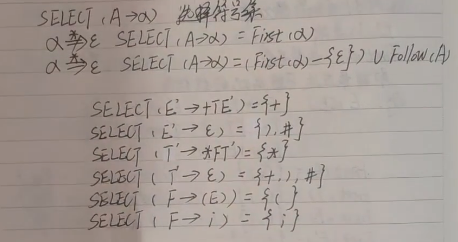 SELECT(A→α) 选择符号集
α ⇏* ε SELECT(A→α) = First(α)
α ⇒* ε SELECT(A→α) = (First(α) - {ε}) ∪ Follow(A)
SELECT(E'→+TE') = {+}
SELECT(E'→ε) = {), #}
SELECT(T'→*FT') = {*}
SELECT(T'→ε) = {+, ), #}
SELECT(F→(E)) = {(}
SELECT(F→i) = {i}